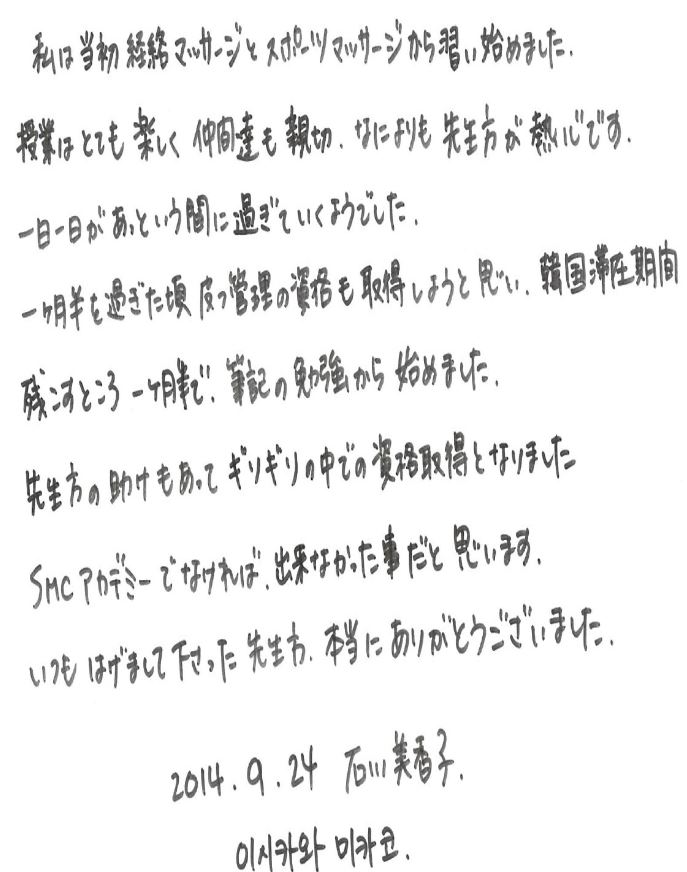 私は当初 経絡マッサージと スポーツマッサージから習い始めました.
授業はとても 楽しく 仲間達も 親切. なによりも 先生方が 熱心です.
一日一日が あっという間に 過ぎていくようでした.
一ヶ月半を過ぎた頃 皮フ管理の資格も取得しようと思い. 韓国滞在期間
残すところ 一ヶ月半で. 筆記の勉強から 始めました.
先生方の助けもあって ギリギリの中での資格取得となりました
SMC アカデミーでなければ. 出来なかった事だと 思います.
いつも はげまして下さった 先生方. 本当にありがとうございました.
2014. 9. 24 石川 美香子.
이시카와 미카코.